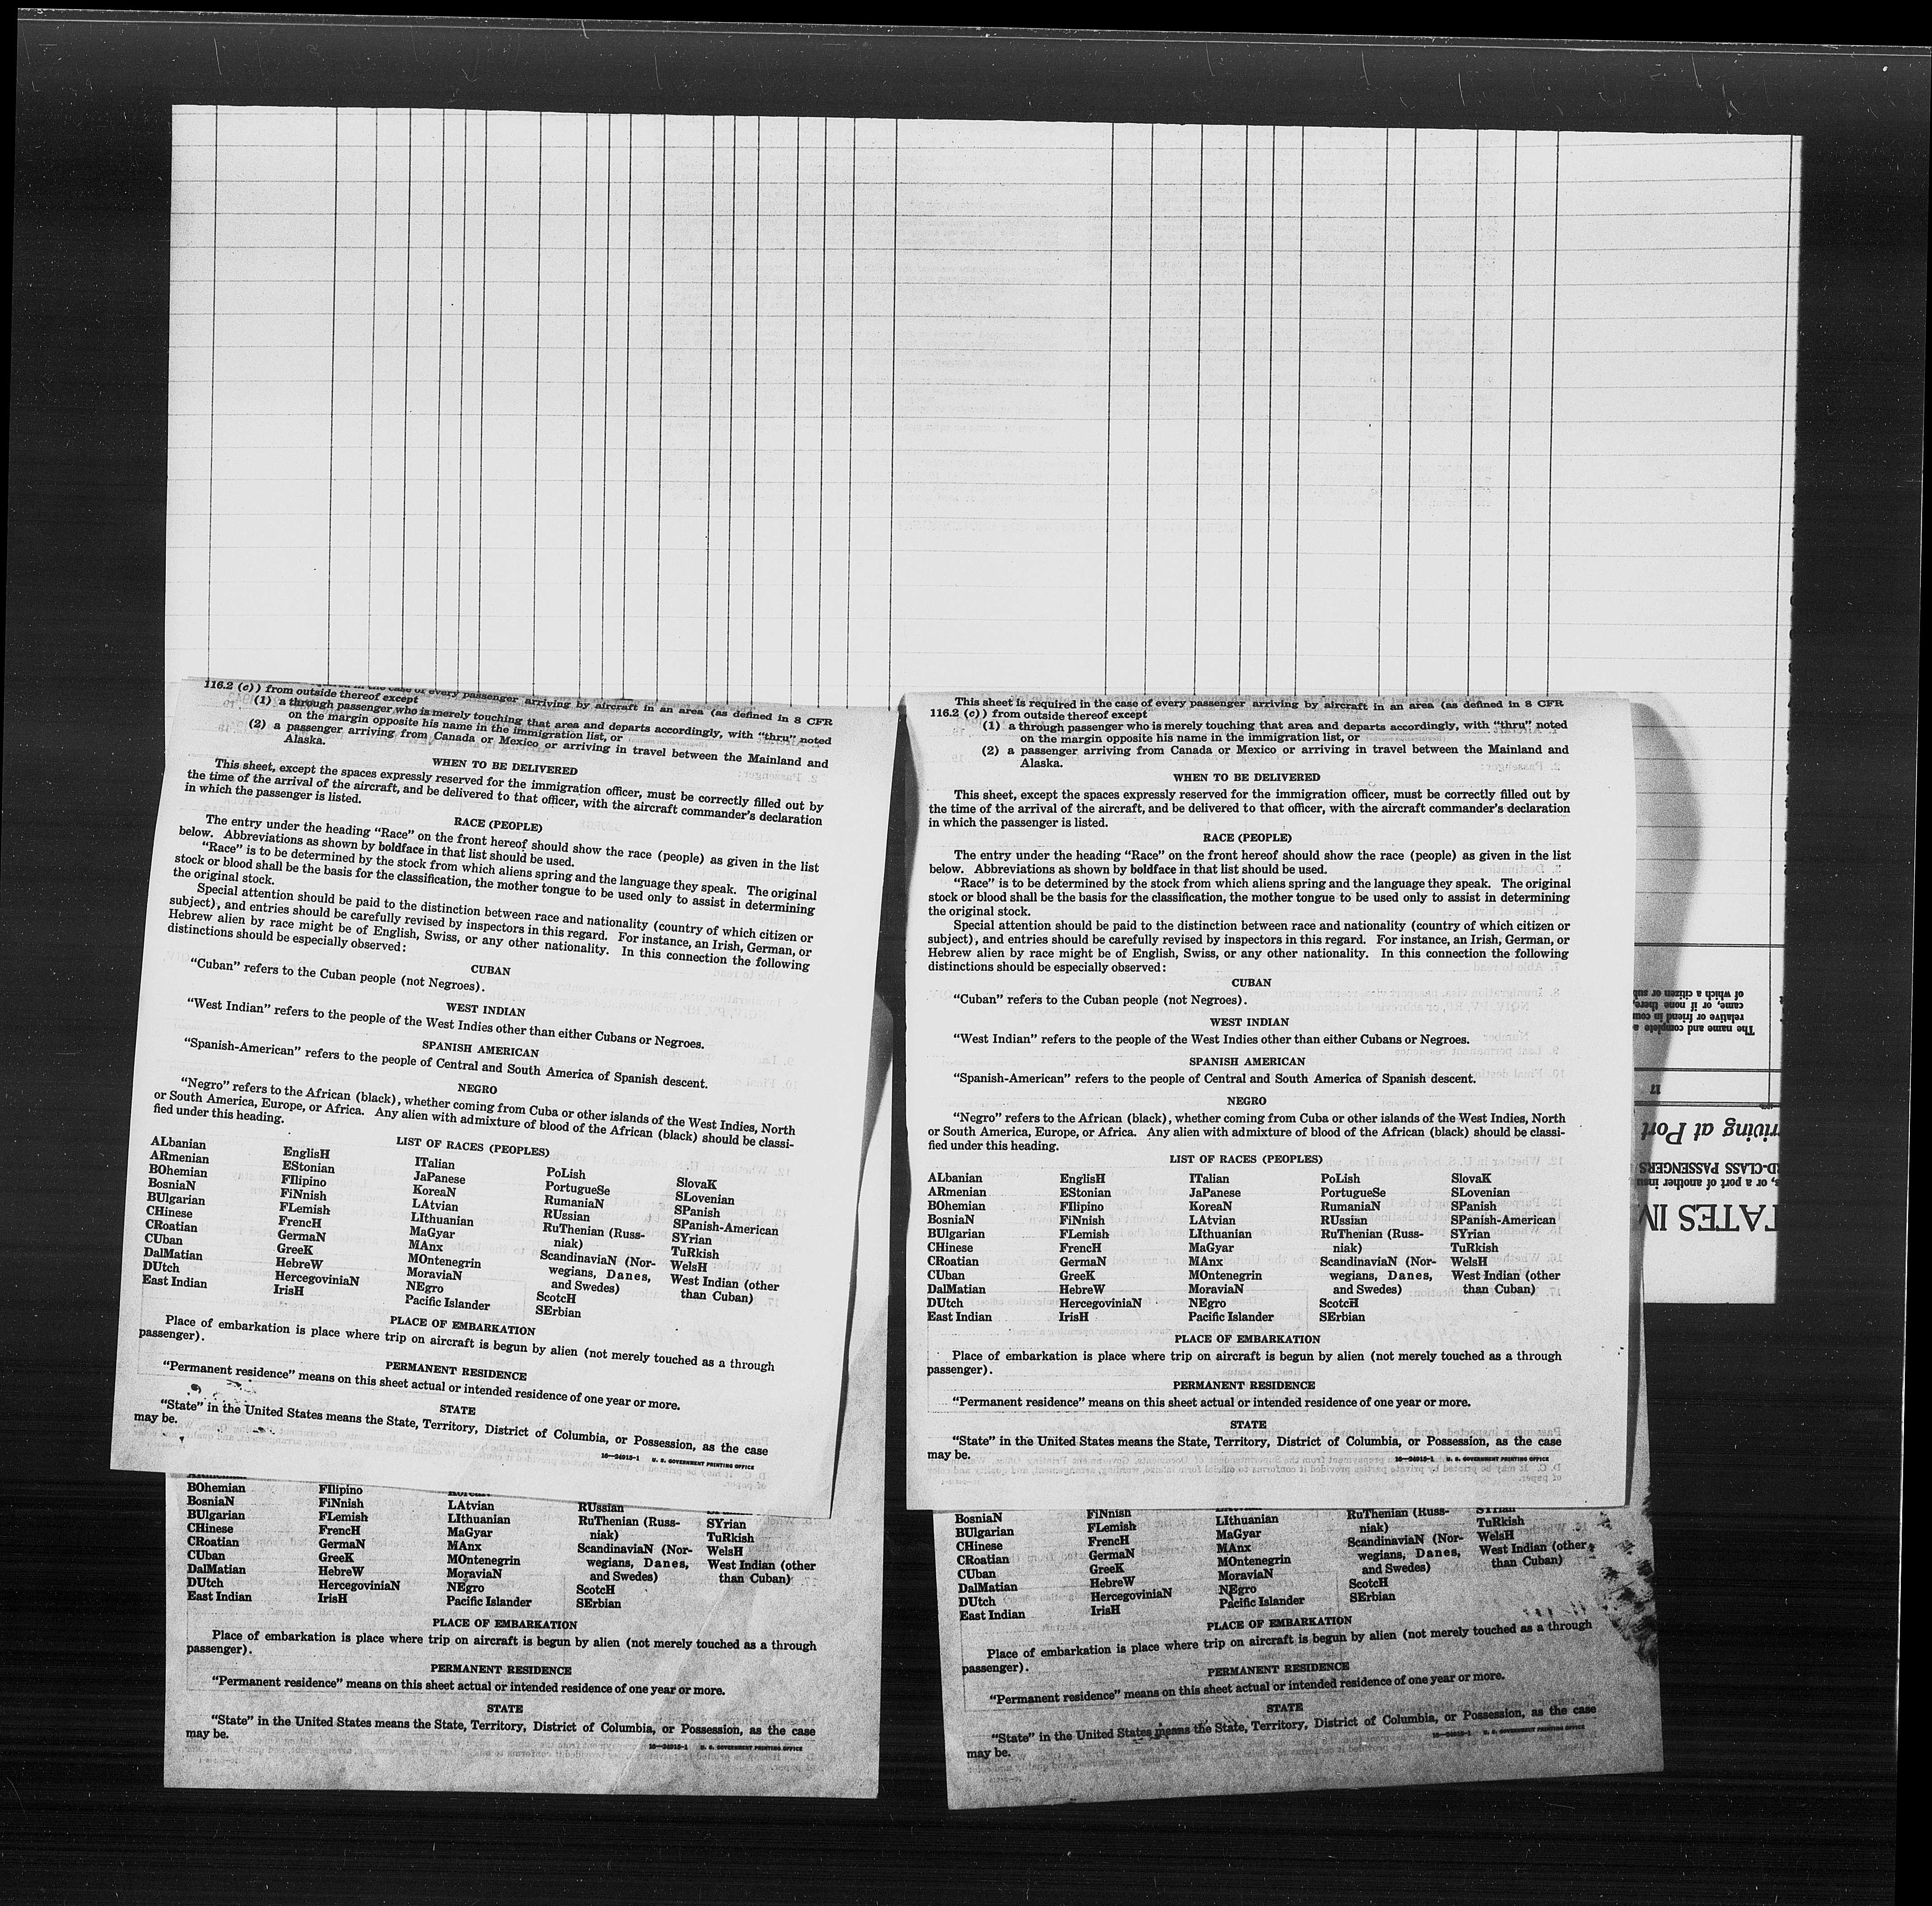 116.2 (c) ) from outside thereof except
(1) a through passenger who is merely touching that area and departs accordingly, with “thru” noted
on the margin opposite his name in the immigration list, or
(2) a passenger arriving from Canada or Mexico or arriving in travel between the Mainland and
Alaska.
WHEN TO BE DELIVERED
This sheet, except the spaces expressly reserved for the immigration officer, must be correctly filled out by
the time of the arrival of the aircraft, and be delivered to that officer, with the aircraft commander’s declaration
in which the passenger is listed.
RACE (PEOPLE)
The entry under the heading “Race” on the front hereof should show the race (people) as given in the list
below. Abbreviations as shown by boldface in that list should be used.
“Race” is to be determined by the stock from which aliens spring and the language they speak. The original
stock or blood shall be the basis for the classification, the mother tongue to be used only to assist in determining
the original stock.
Special attention should be paid to the distinction between race and nationality (country of which citizen or
subject), and entries should be carefully revised by inspectors in this regard. For instance, an Irish, German, or
Hebrew alien by race might be of English, Swiss, or any other nationality. In this connection the following
distinctions should be especially observed:
CUBAN
“Cuban” refers to the Cuban people (not Negroes).
WEST INDIAN
“West Indian” refers to the people of the West Indies other than either Cubans or Negroes.
SPANISH AMERICAN
“Spanish-American” refers to the people of Central and South America of Spanish descent.
NEGRO
“Negro” refers to the African (black), whether coming from Cuba or other islands of the West Indies, North
or South America, Europe, or Africa. Any alien with admixture of blood of the African (black) should be classi-
fied under this heading.
LIST OF RACES (PEOPLES)
ALbanian
ARmenian
BOhemian
BosniaN
BUlgarian
CHinese
CRoatian
CUban
DalMatian
DUtch
East Indian
EnglisH
EStonian
FIlipino
FiNnish
FLemish
FrencH
GermaN
GreeK
HebreW
HercegoviniaN
IrisH
ITalian
JaPanese
KoreaN
LAtvian
LIthuanian
MaGyar
MAnx
MOntenegrin
MoraviaN
NEgro
Pacific Islander
PoLish
PortugueSe
RumaniaN
RUssian
RuThenian (Russ-
niak)
ScandinaviaN (Nor-
wegians, Danes,
and Swedes)
ScotcH
SErbian
SlovaK
SLovenian
SPanish
SPanish-American
SYrian
TuRkish
WelsH
West Indian (other
than Cuban)
PLACE OF EMBARKATION
Place of embarkation is place where trip on aircraft is begun by alien (not merely touched as a through
passenger).
PERMANENT RESIDENCE
“Permanent residence” means on this sheet actual or intended residence of one year or more.
STATE
“State” in the United States means the State, Territory, District of Columbia, or Possession, as the case
may be.
16—24915-1 U. S. GOVERNMENT PRINTING OFFICE
BOhemian
BosniaN
BUlgarian
CHinese
CRoatian
CUban
DalMatian
DUtch
East Indian
FIlipino
FiNnish
FLemish
FrencH
GermaN
GreeK
HebreW
HercegoviniaN
IrisH
LAtvian
LIthuanian
MaGyar
MAnx
MOntenegrin
MoraviaN
NEgro
Pacific Islander
RUssian
RuThenian (Russ-
niak)
ScandinaviaN (Nor-
wegians, Danes,
and Swedes)
ScotcH
SErbian
SYrian
TuRkish
WelsH
West Indian (other
than Cuban)
PLACE OF EMBARKATION
Place of embarkation is place where trip on aircraft is begun by alien (not merely touched as a through
passenger).
PERMANENT RESIDENCE
“Permanent residence” means on this sheet actual or intended residence of one year or more.
STATE
“State” in the United States means the State, Territory, District of Columbia, or Possession, as the case
may be.
16—24915-1 U. S. GOVERNMENT PRINTING OFFICE
This sheet is required in the case of every passenger arriving by aircraft in an area (as defined in 8 CFR
116.2 (c) ) from outside thereof except
(1) a through passenger who is merely touching that area and departs accordingly, with “thru” noted
on the margin opposite his name in the immigration list, or
(2) a passenger arriving from Canada or Mexico or arriving in travel between the Mainland and
Alaska.
WHEN TO BE DELIVERED
This sheet, except the spaces expressly reserved for the immigration officer, must be correctly filled out by
the time of the arrival of the aircraft, and be delivered to that officer, with the aircraft commander’s declaration
in which the passenger is listed.
RACE (PEOPLE)
The entry under the heading “Race” on the front hereof should show the race (people) as given in the list
below. Abbreviations as shown by boldface in that list should be used.
“Race” is to be determined by the stock from which aliens spring and the language they speak. The original
stock or blood shall be the basis for the classification, the mother tongue to be used only to assist in determining
the original stock.
Special attention should be paid to the distinction between race and nationality (country of which citizen or
subject), and entries should be carefully revised by inspectors in this regard. For instance, an Irish, German, or
Hebrew alien by race might be of English, Swiss, or any other nationality. In this connection the following
distinctions should be especially observed:
CUBAN
“Cuban” refers to the Cuban people (not Negroes).
WEST INDIAN
“West Indian” refers to the people of the West Indies other than either Cubans or Negroes.
SPANISH AMERICAN
“Spanish-American” refers to the people of Central and South America of Spanish descent.
NEGRO
“Negro” refers to the African (black), whether coming from Cuba or other islands of the West Indies, North
or South America, Europe, or Africa. Any alien with admixture of blood of the African (black) should be classi-
fied under this heading.
LIST OF RACES (PEOPLES)
ALbanian
ARmenian
BOhemian
BosniaN
BUlgarian
CHinese
CRoatian
CUban
DalMatian
DUtch
East Indian
EnglisH
EStonian
FIlipino
FiNnish
FLemish
FrencH
GermaN
GreeK
HebreW
HercegoviniaN
IrisH
ITalian
JaPanese
KoreaN
LAtvian
LIthuanian
MaGyar
MAnx
MOntenegrin
MoraviaN
NEgro
Pacific Islander
PoLish
PortugueSe
RumaniaN
RUssian
RuThenian (Russ-
niak)
ScandinaviaN (Nor-
wegians, Danes,
and Swedes)
ScotcH
SErbian
SlovaK
SLovenian
SPanish
SPanish-American
SYrian
TuRkish
WelsH
West Indian (other
than Cuban)
PLACE OF EMBARKATION
Place of embarkation is place where trip on aircraft is begun by alien (not merely touched as a through
passenger).
PERMANENT RESIDENCE
“Permanent residence” means on this sheet actual or intended residence of one year or more.
STATE
“State” in the United States means the State, Territory, District of Columbia, or Possession, as the case
may be.
16—24915-1 U. S. GOVERNMENT PRINTING OFFICE
BosniaN
BUlgarian
CHinese
CRoatian
CUban
DalMatian
DUtch
East Indian
FiNnish
FLemish
FrencH
GermaN
GreeK
HebreW
HercegoviniaN
IrisH
LIthuanian
MaGyar
MAnx
MOntenegrin
MoraviaN
NEgro
Pacific Islander
RuThenian (Russ-
niak)
ScandinaviaN (Nor-
wegians, Danes,
and Swedes)
ScotcH
SErbian
TuRkish
WelsH
West Indian (other
than Cuban)
PLACE OF EMBARKATION
Place of embarkation is place where trip on aircraft is begun by alien (not merely touched as a through
passenger).
PERMANENT RESIDENCE
“Permanent residence” means on this sheet actual or intended residence of one year or more.
STATE
“State” in the United States means the State, Territory, District of Columbia, or Possession, as the case
may be.
16—24915-1 U. S. GOVERNMENT PRINTING OFFICE
TATES IM
s, or a port of another insu
RD-CLASS PASSENGERS
riving at Port
17
The name and complete a
relative or friend in cou
came, or if none there,
of which a citizen or sub